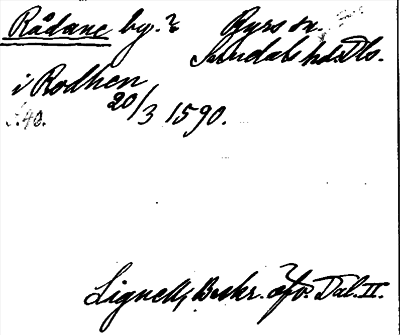 Rådane by. Ryrs sn.
Sundals hd. Dls.
i Rodhen
20/3 1590.
S. 40.
Lignell, Beskr. öfv. Dal. II.